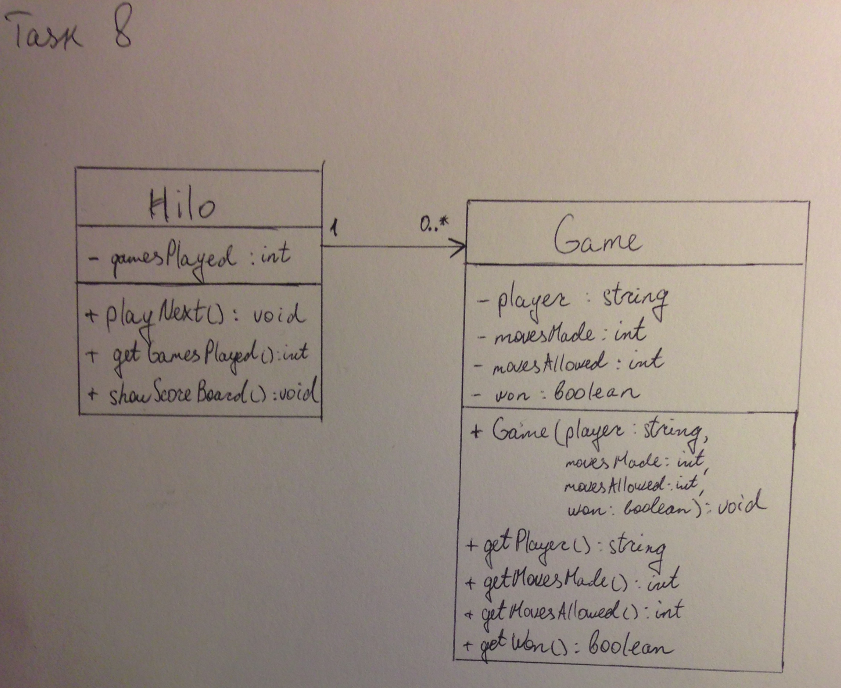 Task 8
Hilo
- gamesPlayed : int
+ playNext() : void
+ getGamesPlayed() : int
+ showScoreBoard() : void
1
0..*
Game
- player : string
- movesMade : int
- movesAllowed : int
- won : boolean
+ Game(player : string,
movesMade : int,
movesAllowed : int,
won : boolean) : void
+ getPlayer() : string
+ getMovesMade() : int
+ getMovesAllowed() : int
+ getWon() : boolean